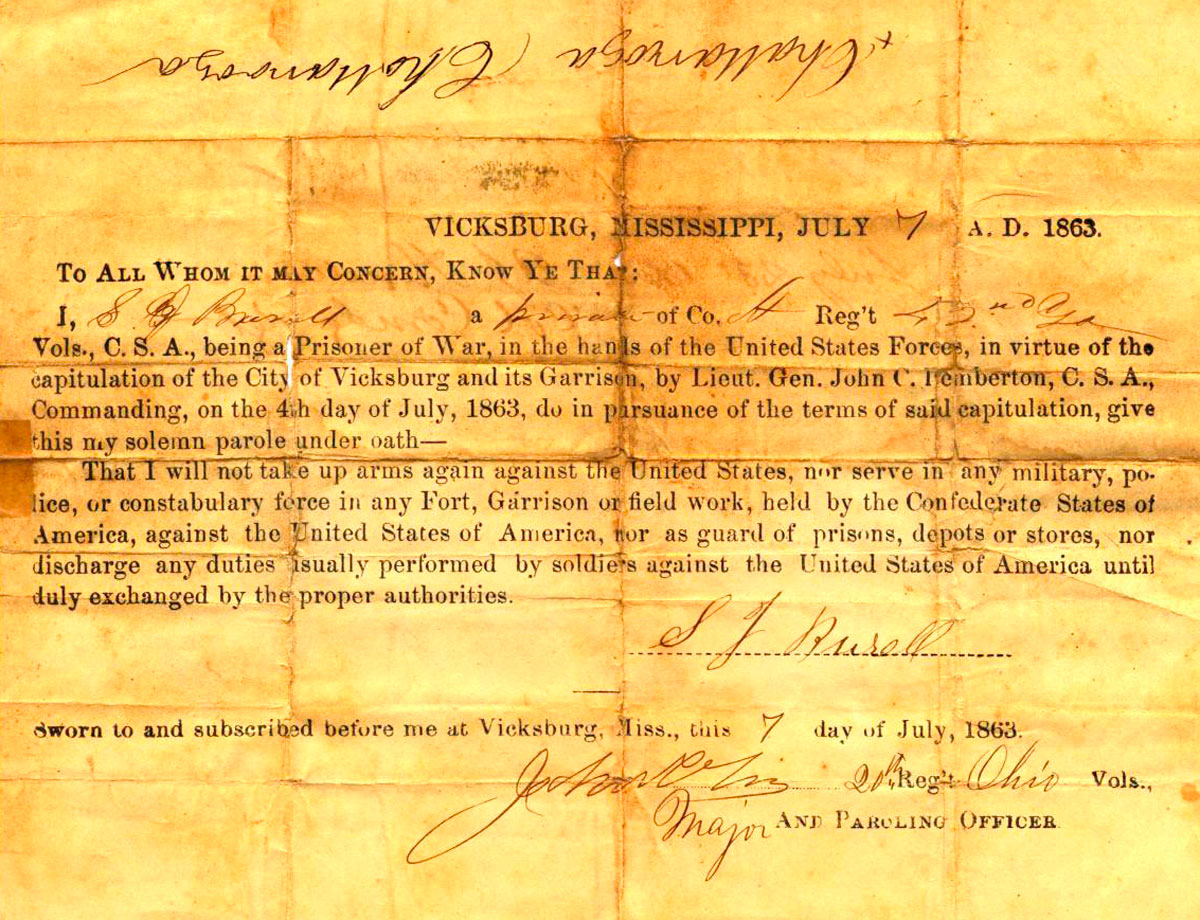 Chattanooga Chattanooga
VICKSBURG, MISSISSIPPI, JULY 7 A. D. 1863.
TO ALL WHOM IT MAY CONCERN, KNOW YE THAT:
I, S J a private of Co. Reg't nd Ga
Vols., C. S. A., being a Prisoner of War, in the hands of the United States Forces, in virtue of the
capitulation of the City of Vicksburg and its Garrison, by Lieut. Gen. John C. Pemberton, C. S. A.,
Commanding, on the 4th day of July, 1863, do in pursuance of the terms of said capitulation, give
this my solemn parole under oath—
That I will not take up arms again against the United States, nor serve in any military, po-
lice, or constabulary force in any Fort, Garrison or field work, held by the Confederate States of
America, against the United States of America, nor as guard of prisons, depots or stores, nor
discharge any duties usually performed by soldiers against the United States of America until
duly exchanged by the proper authorities.
S J
Sworn to and subscribed before me at Vicksburg, Miss., this 7 day of July, 1863.
John C Fry 20th Reg't Ohio Vols.,
Major AND PAROLING OFFICER